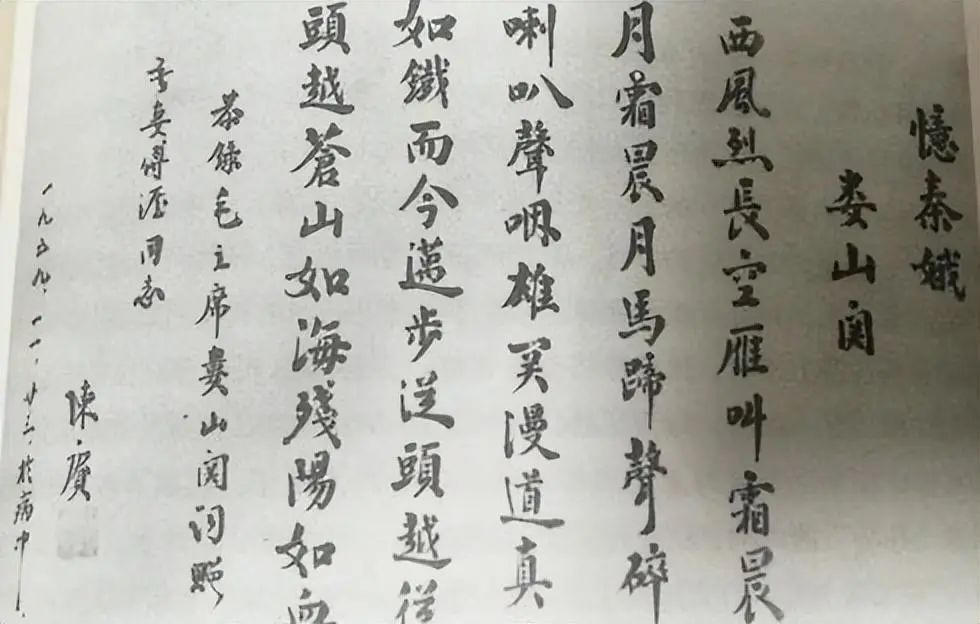 憶秦娥
娄山関
西風烈長空雁叫霜晨
月霜晨月馬蹄聲碎
喇叭聲咽雄关漫道真
如鐵而今邁步從頭越從
頭越蒼山如海殘陽如血
恭錄毛主席婁山関詞贈
吾妻傅涯同志
陳賡
一九五九.一一.廿三.於病中.